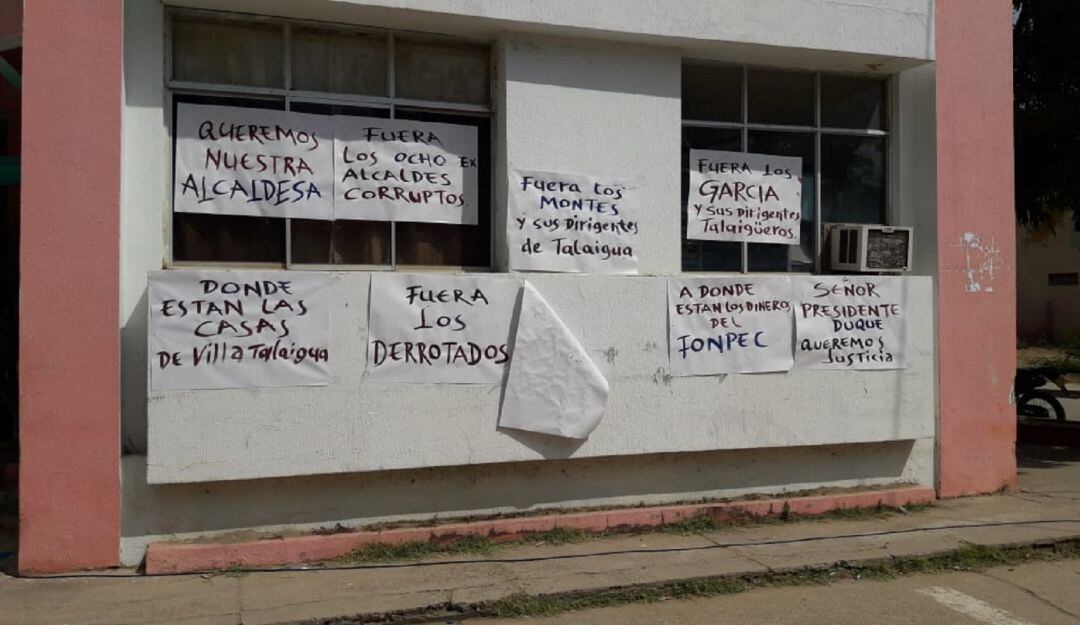 QUEREMOS
NUESTRA
ALCALDESA
FUERA
LOS OCHO EX
ALCALDES
CORRUPTOS.
FUERA LOS
MONTES
Y SUS DIRIGENTES
de TALAIGUA
FUERA LOS
GARCIA
Y SUS DIRIGENTES
TALAIGÜEROS.
DONDE
ESTAN LAS
CASAS
DE VILLA TALAIGUA
FUERA
LOS
DERROTADOS
A DONDE
ESTAN LOS DINEROS
DEL
FONPEC
SEÑOR
PRESIDENTE
DUQUE
QUEREMOS
JUSTICIA